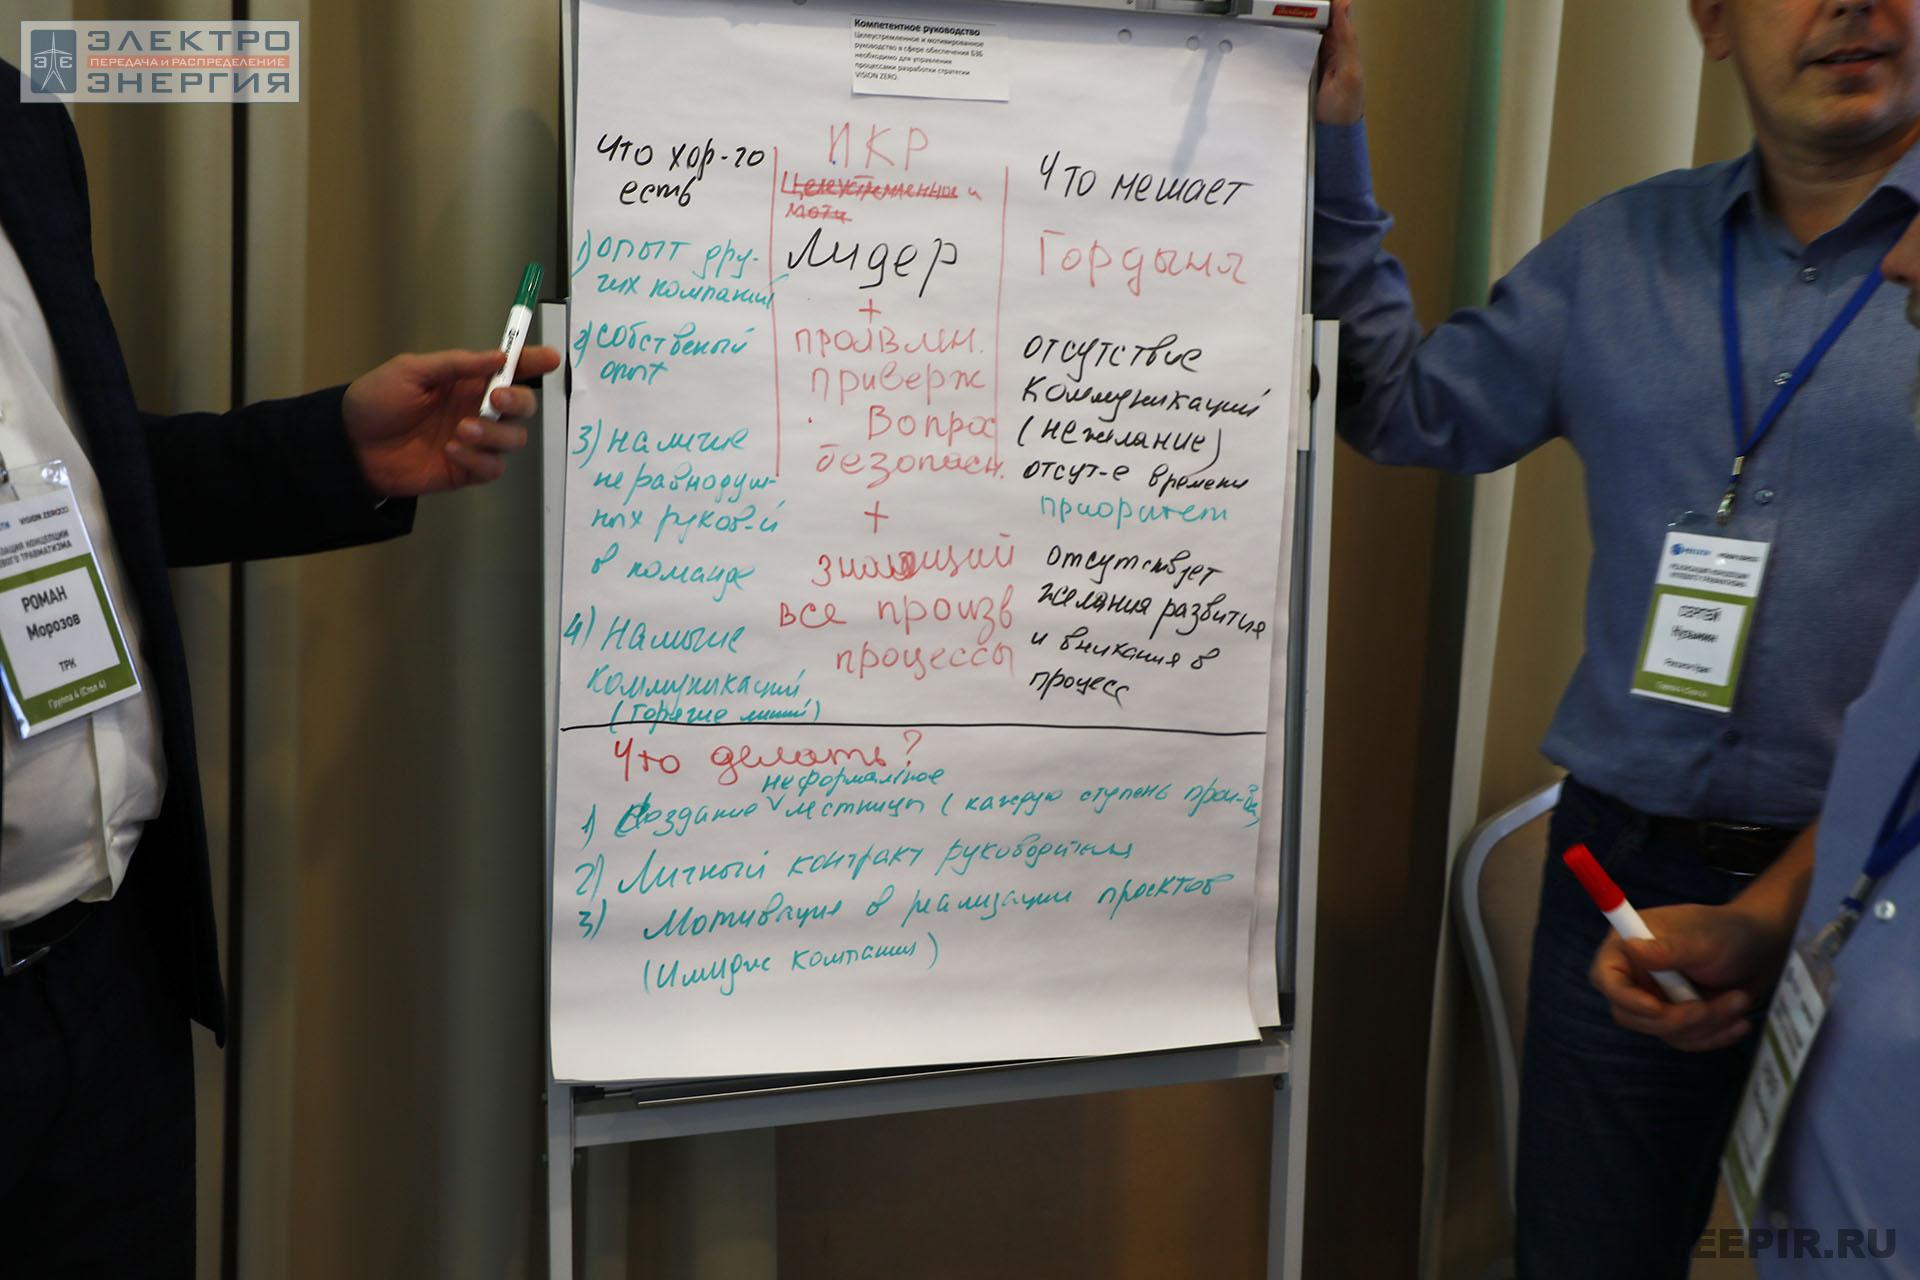 ЭЛЕКТРО
ЭНЕРГИЯ
ПЕРЕДАЧА И РАСПРЕДЕЛЕНИЕ
Компетентное руководство
Целеустремленное и мотивированное
руководство в сфере обеспечения БЗБ
необходимо для управления
процессами разработки стратегии
VISION ZERO.
Что хор-го
есть
1) опыт дру-
гих компаний
2) собственый
опыт
3) наличие
неравнодуш-
ных руков-й
в команде
4) Наличие
коммуникаций
(горячие линий)
ИКР
Целеустремленное и
моти
Лидер
+
проявлен.
приверж
Вопрос
безопасн.
+
знающий
все произв
процессы
Что мешает
Гордыня
отсутствие
коммуникаций
(нежелание)
отсут-е времени
приоритет
отсутствует
желания развития
и вникания в
процесс
Что делать?
неформальное
1) Создание лестницы (каждую ступень
2) Личный контракт руководителя
3) Мотивация в реализации проектов
(Имидж компания)
VISION ZERO
РОМАН
Морозов
ТРК
Группа 4 (Стол 4)
СЕРГЕЙ
EEPIR.RU